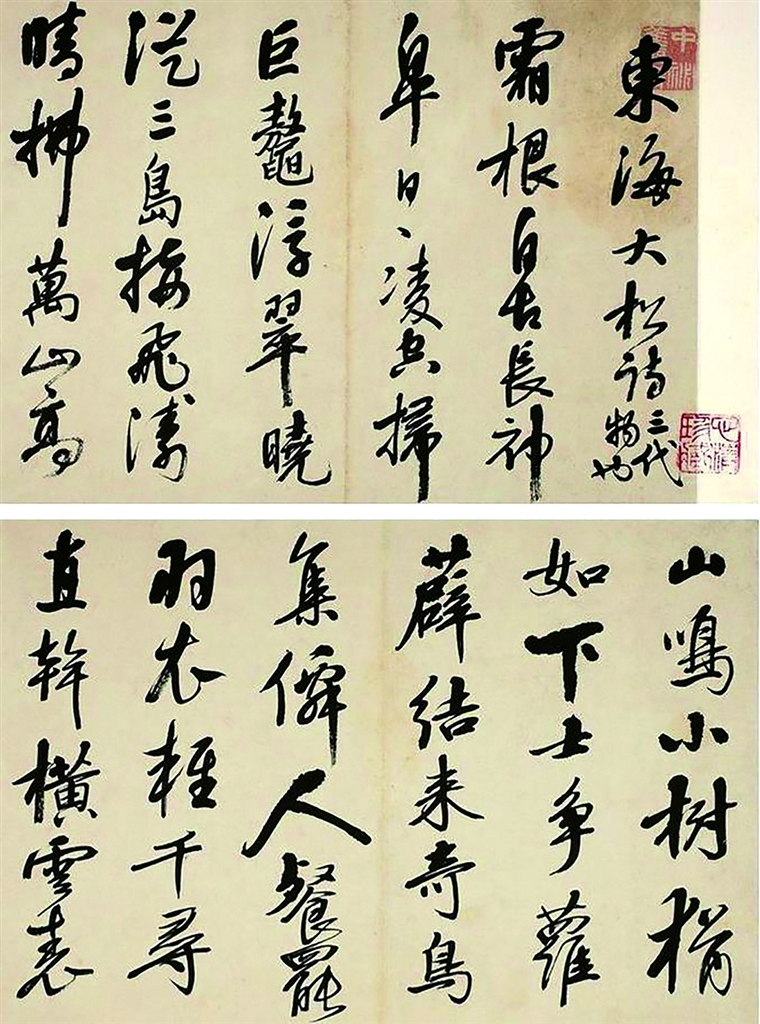 東海大松詩三代
物也
霜根自古長神
皐日〻凌空掃
巨鼇浮翠曉
從三島接飛濤
晴拂萬山高
山鳴小樹揖
如下士爭蘿
薜結来奇鳥
集僊人餐罷
羽衣輕千尋
直幹橫雲表